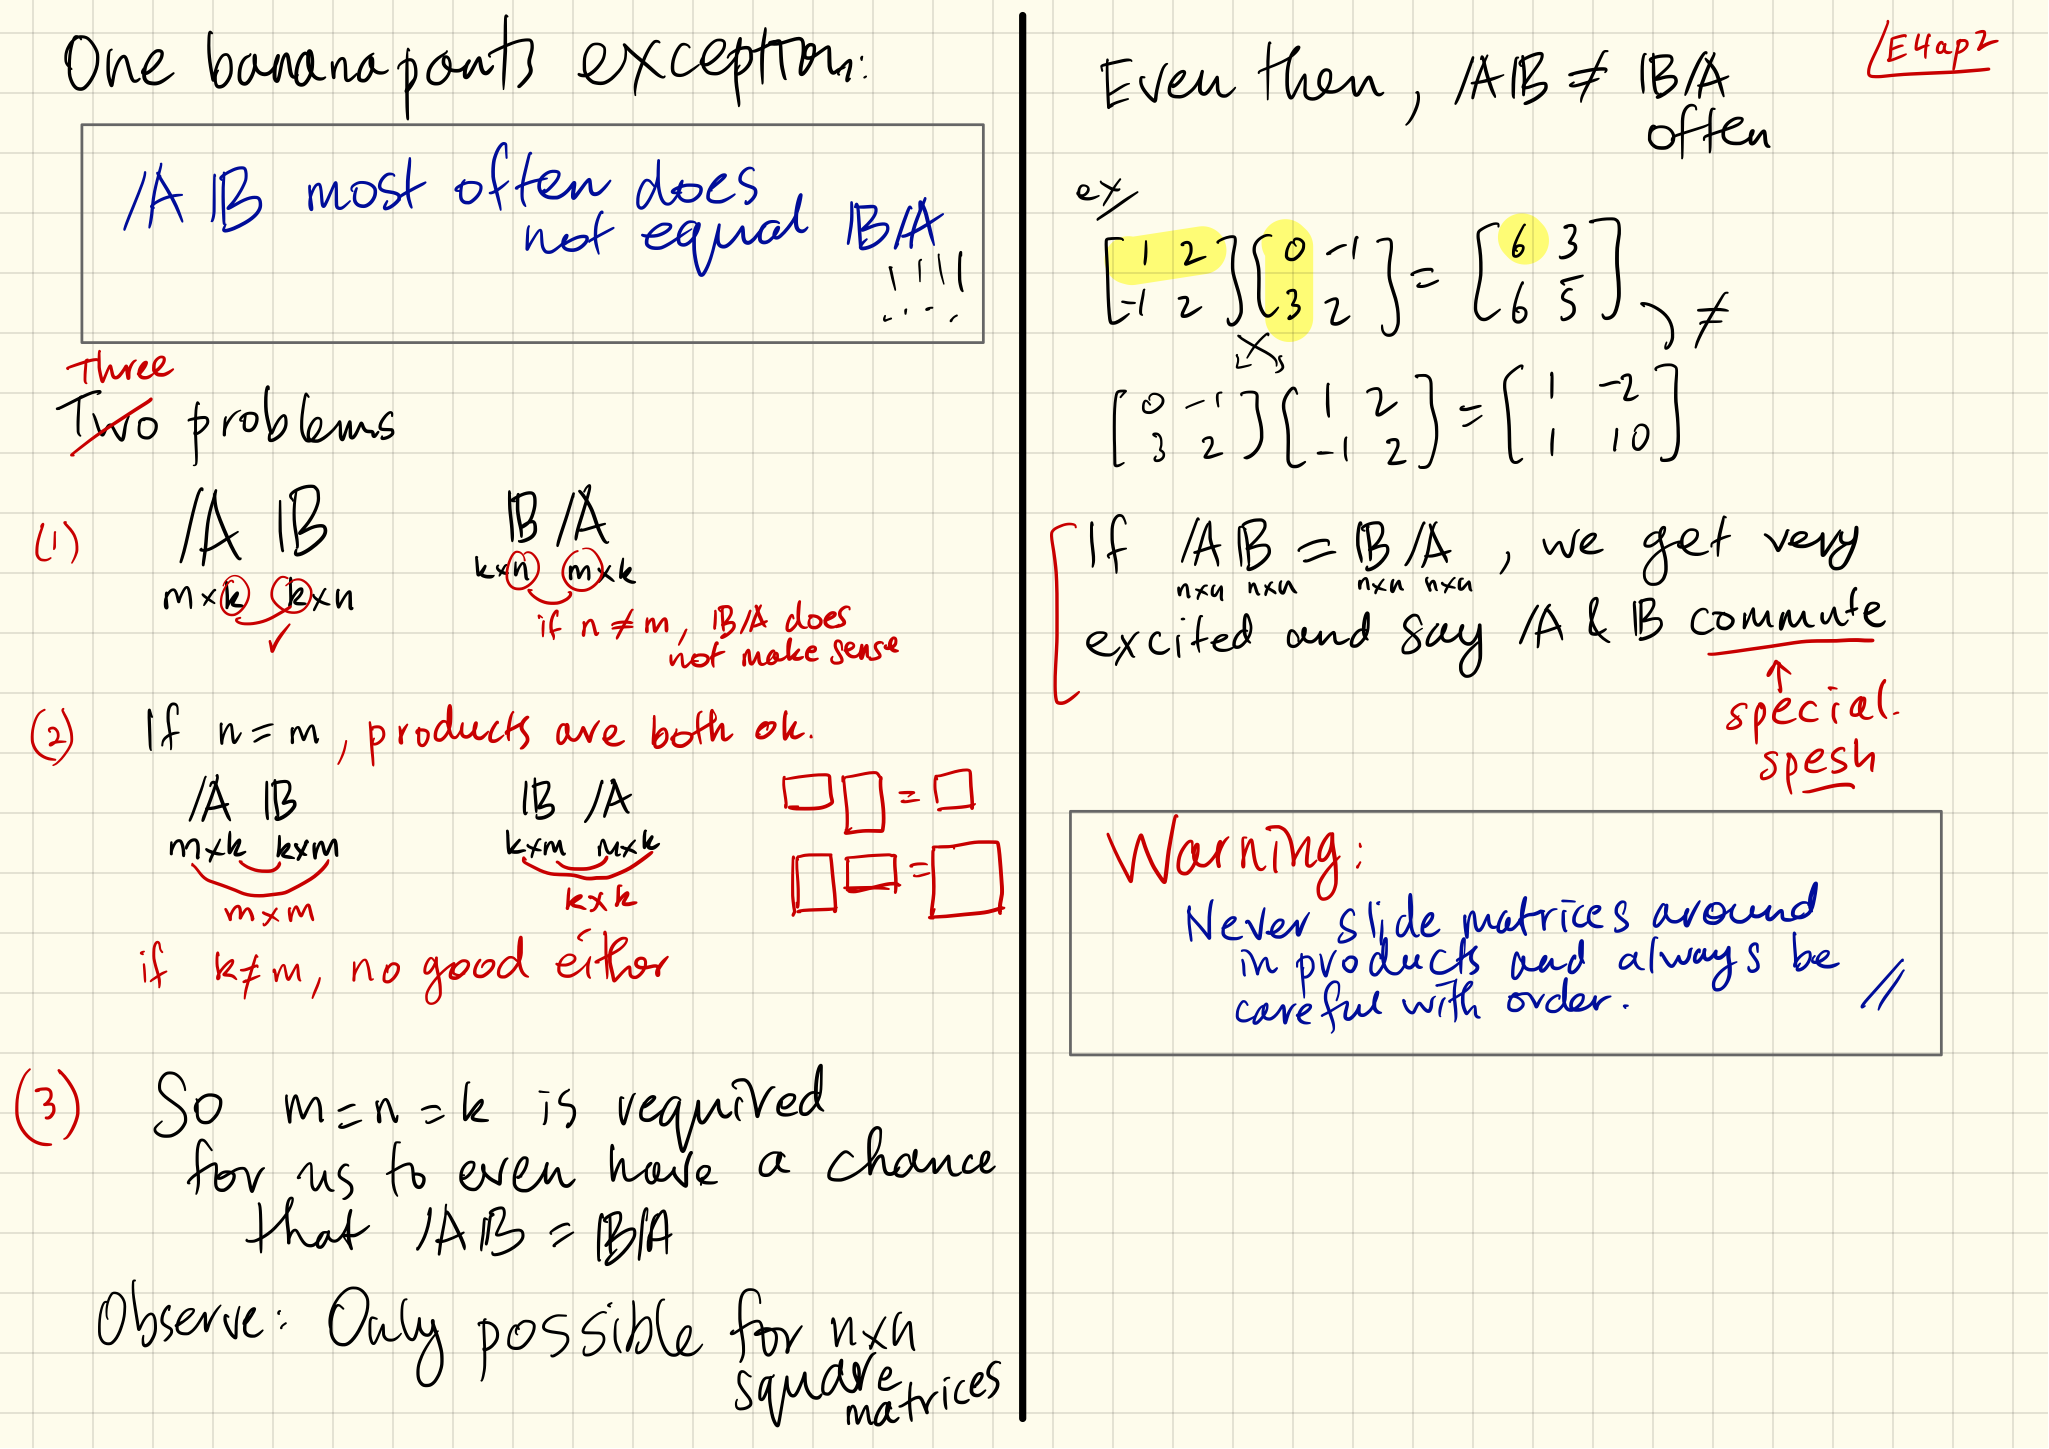 One bananapants exception:
AB most often does
not equal BA
!!!!
Three
Two problems
(1) AB BA
m×k k×n k×n m×k
✓ if n≠m, BA does
not make sense
(2) If n=m, products are both ok.
AB BA
m×k k×m k×m m×k
m×m k×k
□ □ = □
□ □ = □
if k≠m, no good either
(3) So m=n=k is required
for us to even have a chance
that AB = BA
Observe: Only possible for n×n
square
matrices
E4ap2
Even then, AB ≠ BA
often
ex/
[1 2; -1 2][0 -1; 3 2] = [6 3; 6 5]
≠
[0 -1; 3 2][1 2; -1 2] = [1 -2; 1 10]
If AB = BA, we get very
n×n n×n n×n n×n
excited and say A & B commute
↑
special.
spesh
Warning:
Never slide matrices around
in products and always be
careful with order. //